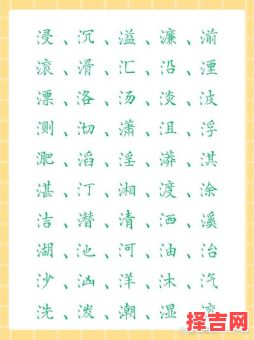 浸、沉、溢、濂、湔
滚、滑、汇、沿、湮
漂、洛、汤、淡、波
测、沏、潇、沮、浮
淝、滔、淫、漭、淇
湛、汀、湘、渡、涂
洁、潜、清、洒、溪
湖、池、河、油、治
沙、汹、洋、沐、汽
洗、泼、潮、湿、
择吉网